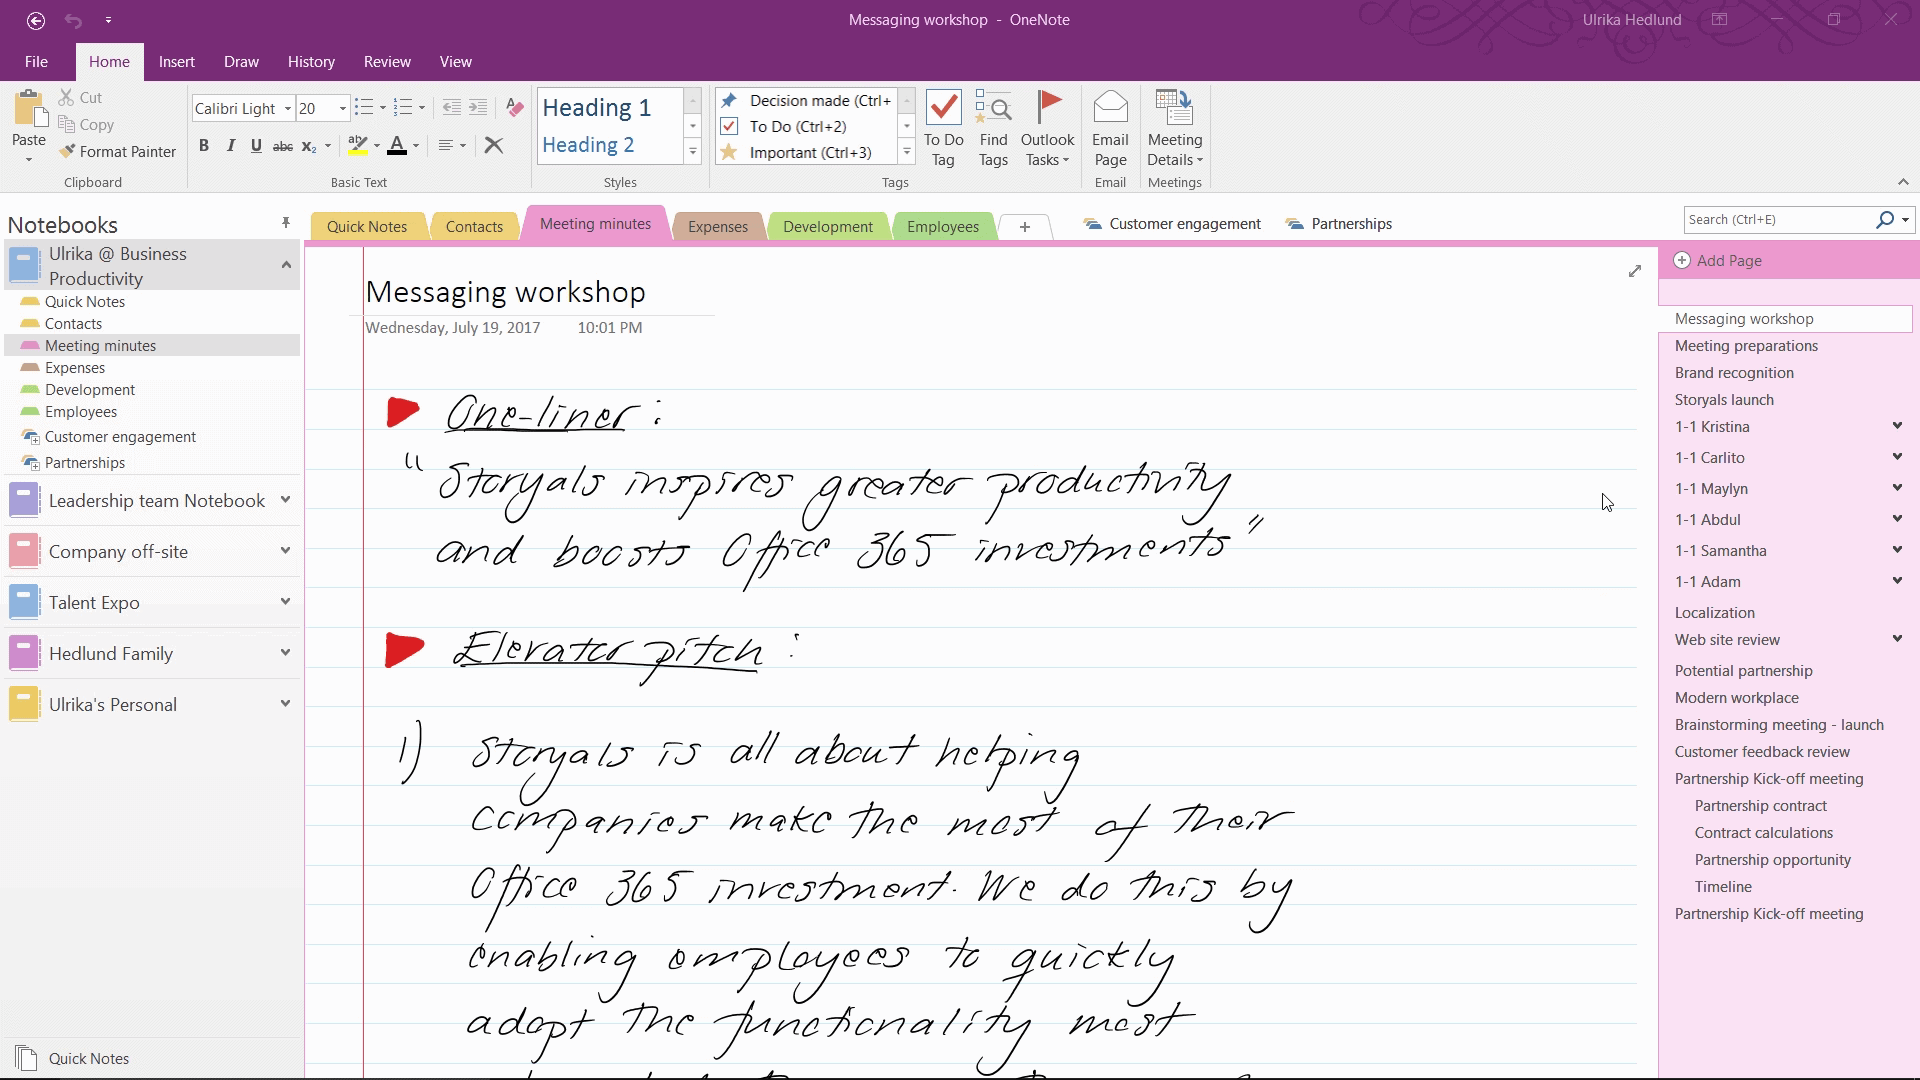 Messaging workshop - OneNote
Ulrika Hedlund
File Home Insert Draw History Review View
Paste
Cut
Copy
Format Painter
Clipboard
Calibri Light 20
B I U abc x₂ A
Basic Text
Heading 1
Heading 2
Styles
Decision made (Ctrl+
To Do (Ctrl+2)
Important (Ctrl+3)
To Do Tag
Find Tags
Outlook Tasks
Tags
Email Page
Email
Meeting Details
Meetings
Notebooks
Ulrika @ Business
Productivity
Quick Notes
Contacts
Meeting minutes
Expenses
Development
Employees
Customer engagement
Partnerships
Leadership team Notebook
Company off-site
Talent Expo
Hedlund Family
Ulrika's Personal
Quick Notes
Quick Notes Contacts Meeting minutes Expenses Development Employees + Customer engagement Partnerships
Search (Ctrl+E)
Messaging workshop
Wednesday, July 19, 2017 10:01 PM
One-liner:
"Storyals inspires greater productivity
and boosts Office 365 investments"
Elevator pitch:
1) Storyals is all about helping
companies make the most of their
Office 365 investment. We do this by
enabling employees to quickly
adopt the functionality most
Add Page
Messaging workshop
Meeting preparations
Brand recognition
Storyals launch
1-1 Kristina
1-1 Carlito
1-1 Maylyn
1-1 Abdul
1-1 Samantha
1-1 Adam
Localization
Web site review
Potential partnership
Modern workplace
Brainstorming meeting - launch
Customer feedback review
Partnership Kick-off meeting
Partnership contract
Contract calculations
Partnership opportunity
Timeline
Partnership Kick-off meeting